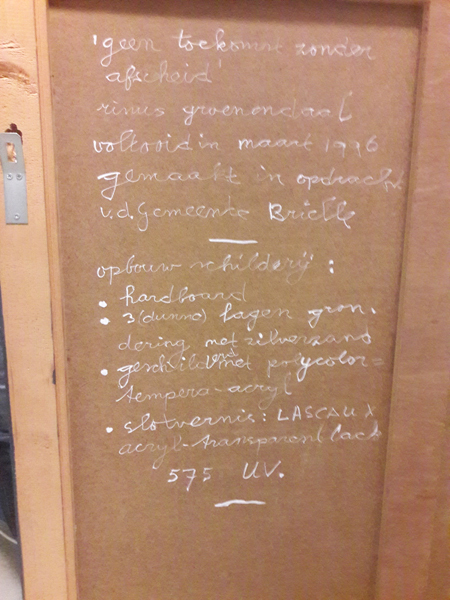 'geen toekomst zonder
afscheid'
rinus groenendaal
voltooid in maart 1996
gemaakt in opdracht
v.d. Gemeente Brielle
opbouw schilderij:
• hardboard
• 3 (dunne) lagen gron-
dering met zilverzand
• geschilderd met polycolor=
tempera-acryl
• slotvernis: LASCAUX
acryl-transparentlack
575 UV.